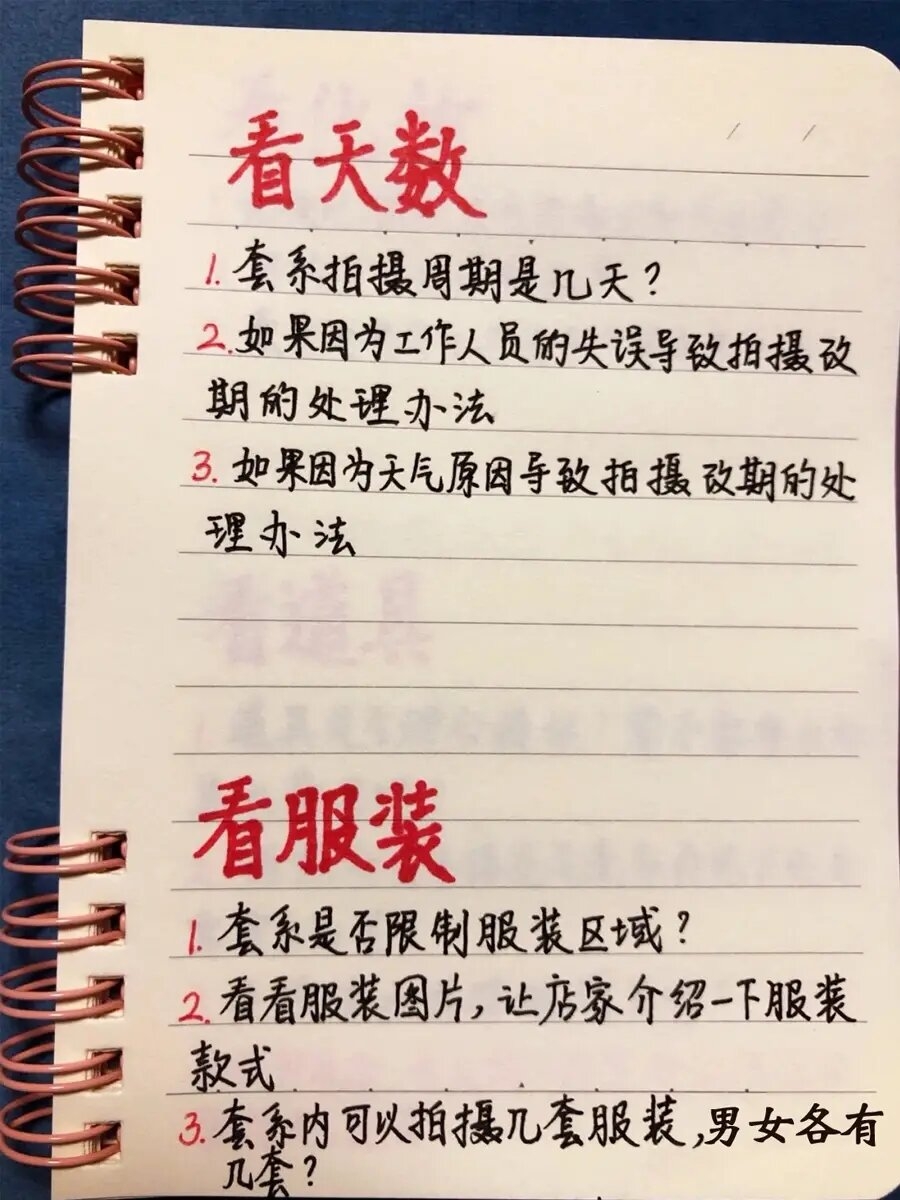 看天数
1. 套系拍摄周期是几天?
2. 如果因为工作人员的失误导致拍摄改
期的处理办法
3. 如果因为天气原因导致拍摄改期的处
理办法
看道具
看服装
1. 套系是否限制服装区域?
2. 看看服装图片,让店家介绍一下服装
款式
3. 套系内可以拍摄几套服装,男女各有
几套?